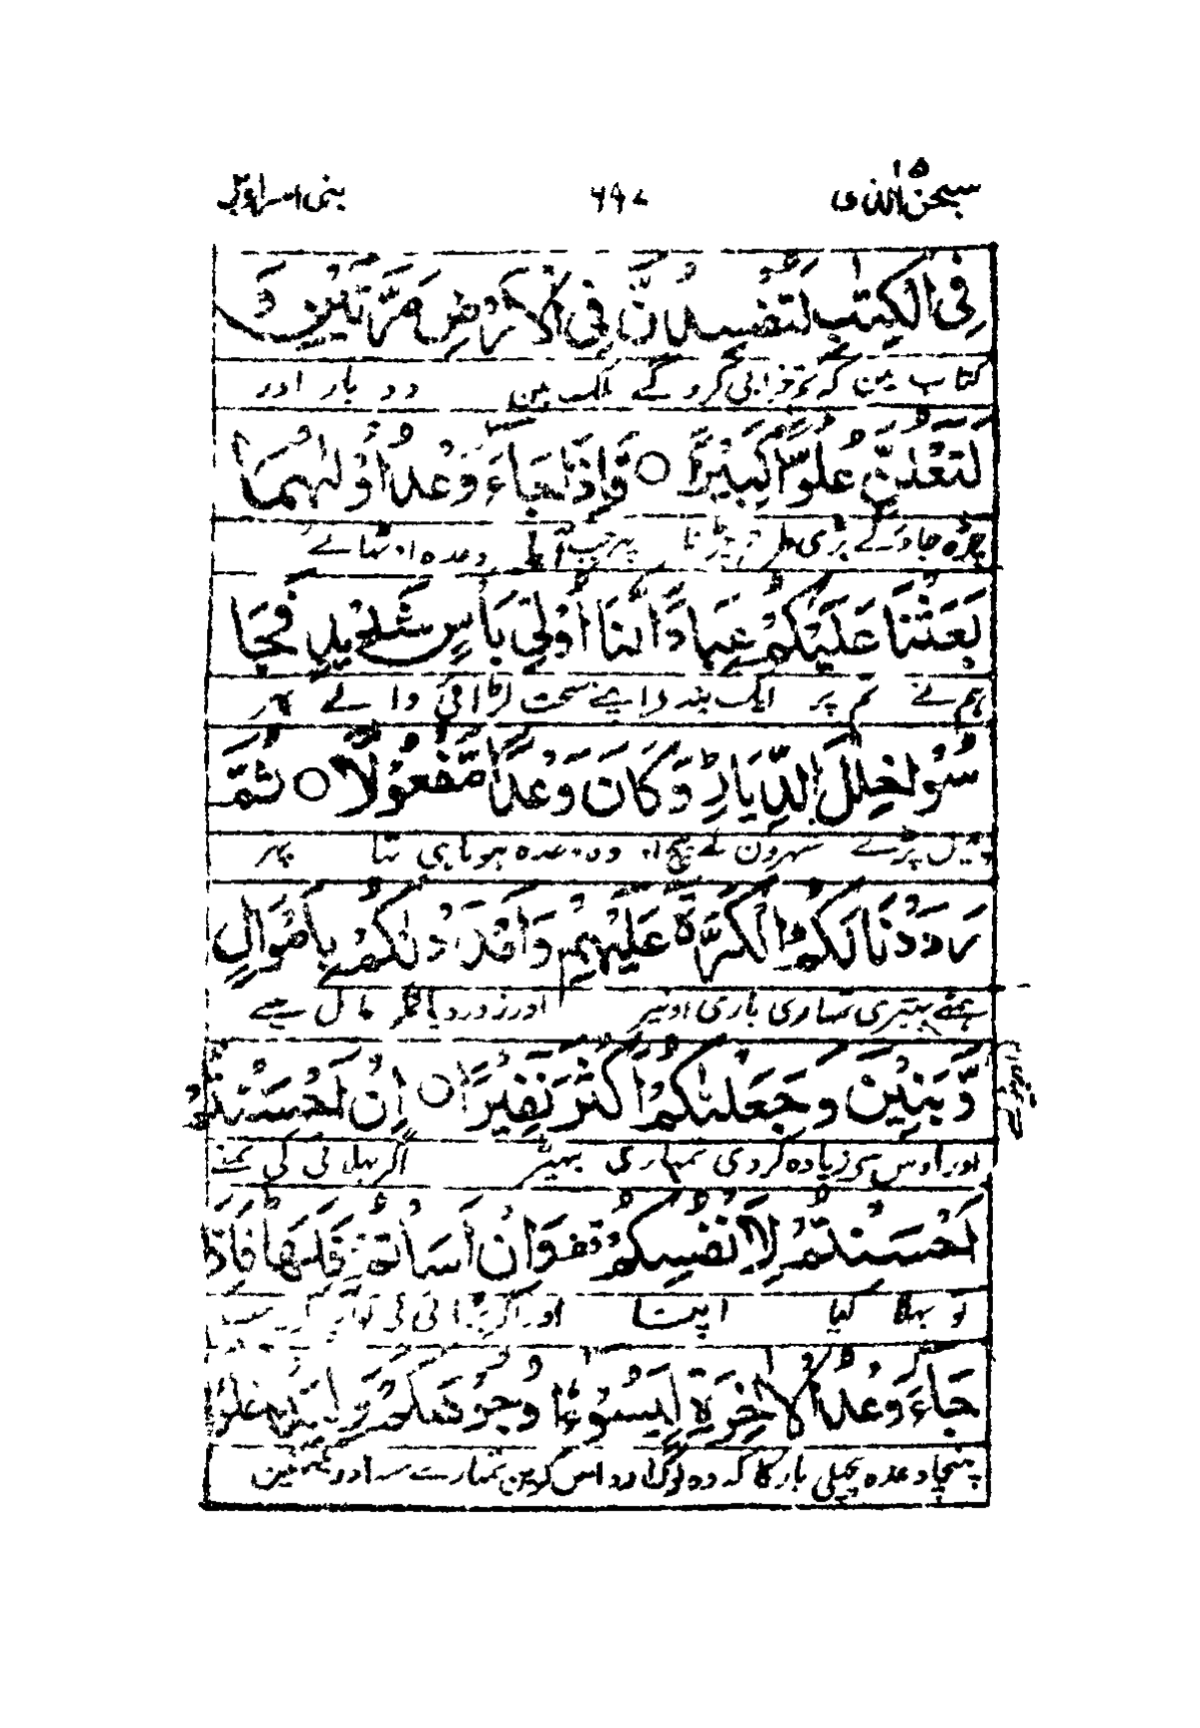 سبحٰن الذی ۱۵ ۶۹۷ بنی اسراءیل
فِی الْكِتٰبِ لَتُفْسِدُنَّ فِی الْاَرْضِ مَرَّتَیْنِ وَ
كتاب مین كہ تم خرابی كرو گے ملك مین دو بار اور
لَتَعْلُنَّ عُلُوًّا كَبِیْرًا ○ فَاِذَا جَآءَ وَعْدُ اُوْلٰىهُمَا
چڑہ جاؤ گے بڑی طرح چڑہنا پہر جب آیا وعدہ
بَعَثْنَا عَلَیْكُمْ عِبَادًا لَّنَا اُولِیْ بَاْسٍ شَدِیْدٍ فَجَا
ہم نے تم پر ایك بندے اپنے سخت لڑائی والے پہر
سُوْا خِلٰلَ الدِّیَارِ وَكَانَ وَعْدًا مَّفْعُوْلًا ○ ثُمَّ
پڑے شہرون كے بیچ اور وہ وعدہ ہونا ہی تہا پہر
رَدَدْنَا لَكُمُ الْكَرَّةَ عَلَیْهِمْ وَاَمْدَدْنٰكُمْ بِاَمْوَالٍ
ہمنے پہیری تمہاری باری اونپر اور زور دیا تمكو مال سے
وَّبَنِیْنَ وَجَعَلْنٰكُمْ اَكْثَرَ نَفِیْرًا ○ اِنْ اَحْسَنْتُمْ
اور اوس سے زیادہ كردی تمہاری بہیڑ اگر بہلائی كی تمنے
اَحْسَنْتُمْ لِاَنْفُسِكُمْ وَاِنْ اَسَاْتُمْ فَلَهَا فَاِذَا
تو بہلا كیا اپنا اور اگر برائی كی تو
جَآءَ وَعْدُ الْاٰخِرَةِ لِیَسُوْٓءٗا وُجُوْهَكُمْ وَلِیَدْخُلُوا
پہنچا وعدہ پچہلی بار كا كہ وہ لوگ اوداس كرین تمہارے منہ اور